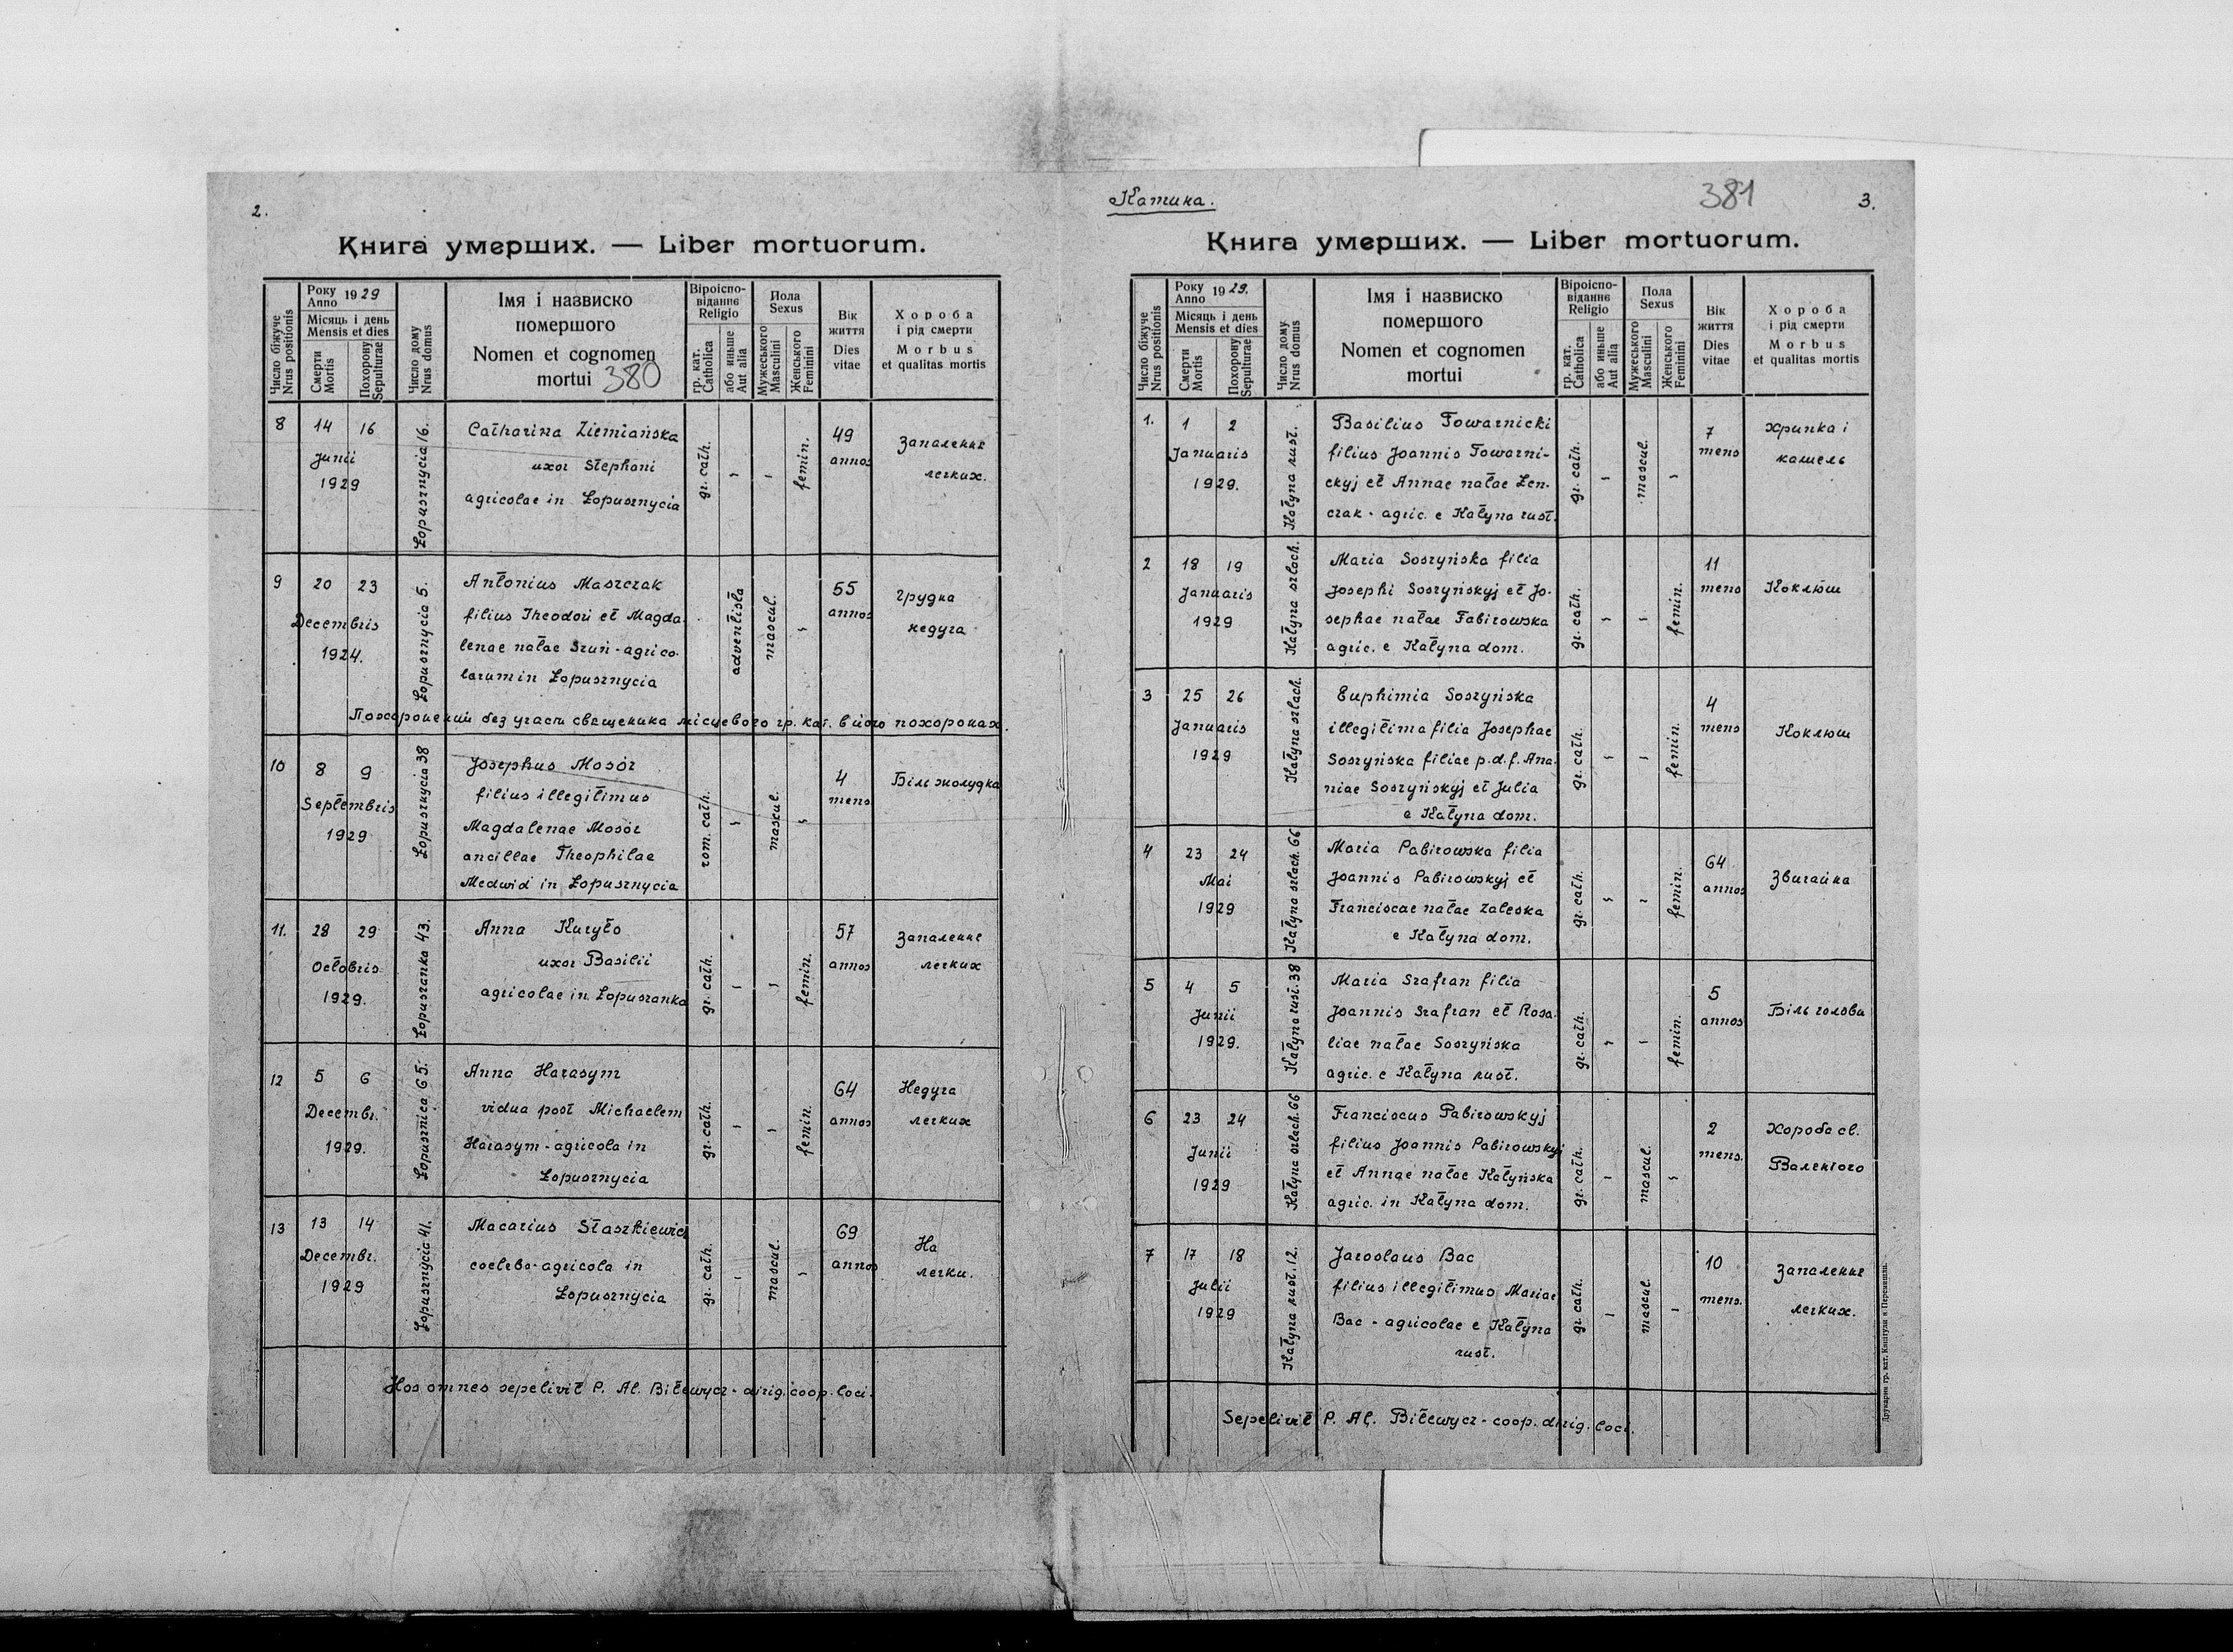 2.
Книга умерших. — Liber mortuorum.
Число біжуче
Nrus positionis
Року
Anno 1929
Місяць і день
Mensis et dies
Смерти
Mortis
Похорону
Sepulturae
Число дому
Nrus domus
Імя і назвиско
помершого
Nomen et cognomen
mortui 380
Віроіспо-
віданнє
Religio
гр. кат.
Catholica
або иньше
Aut alia
Пола
Sexus
Мужеського
Masculini
Женського
Feminini
Вік
життя
Dies
vitae
Хороба
і рід смерти
Morbus
et qualitas mortis
8
14 16
Junii
1929
Łopusznycia 16.
Catharina Ziemiańska
uxor Stephani
agricolae in Łopusznycia
gr. cath.
femin.
49
annos
Запаленнє
легких.
9
20 23
Decembris
1924.
Łopusznycia 5.
Antonius Maszczak
filius Theodori et Magda-
lenae natae Szuń - agrico-
larum in Łopusznycia
adventista
mascul.
55
annos
грудна
недуга
Похоронений без участи священика місцевого гр. кат. в його похоронах.
10
8 9
Septembris
1929
Łopusznycia 38
Josephus Mosór
filius illegitimus
Magdalenae Mosór
ancillae Theophilae
Medwid in Łopusznycia
rom. cath.
mascul.
4
mens
Біль жолудка
11.
28 29
Octobris
1929.
Łopuszanka 43.
Anna Kuryło
uxor Basilii
agricolae in Łopuszanka
gr. cath.
femin.
57
annos
Запаленнє
легких
12
5 6
Decembr.
1929.
Łopusznica 65.
Anna Harasym
vidua post Michaelem
Harasym - agricola in
Łopusznycia
gr. cath.
femin.
64
annos
Недуга
легких
13
13 14
Decembr.
1929
Łopusznycia 41.
Macarius Staszkiewicz
coelebs - agricola in
Łopusznycia
gr. cath.
mascul.
69
annos
На
легки.
Hos omnes sepelivit P. Al. Bilewycz - dirig. coop. loci.
381
3.
Книга умерших. — Liber mortuorum.
Число біжуче
Nrus positionis
Року
Anno 1929.
Місяць і день
Mensis et dies
Смерти
Mortis
Похорону
Sepulturae
Число дому
Nrus domus
Імя і назвиско
помершого
Nomen et cognomen
mortui
Віроіспо-
віданнє
Religio
гр. кат.
Catholica
або иньше
Aut alia
Пола
Sexus
Мужеського
Masculini
Женського
Feminini
Вік
життя
Dies
vitae
Хороба
і рід смерти
Morbus
et qualitas mortis
1.
1 2
Januaris
1929.
Katyna rust.
Basilius Towarnicki
filius Joannis Towarni-
ckyj et Annae natae Len-
czak - agric. e Katyna rust.
gr. cath.
mascul.
7
mens
хрипка і
кашель
2
18 19
Januaris
1929
Katyna szlach.
Maria Soszyńska filia
Josephi Soszyńskyj et Jo-
sephae natae Fabirowska
agric. e Katyna dom.
gr. cath.
femin.
11
mens
Коклюш
3
25 26
Januaris
1929
Katyna szlach.
Euphimia Soszyńska
illegitima filia Josephae
Soszyńska filiae p.d.f. Ana-
niae Soszyńskyj et Julia
e Katyna dom.
gr. cath.
femin.
4
mens
Коклюш
4
23 24
Mai
1929
Katyna szlach. 66
Maria Pabirowska filia
Joannis Pabirowskyj et
Franciscae natae Zaleska
e Katyna dom.
gr. cath.
femin.
64
annos
Звичайна
5
4 5
Junii
1929.
Katyna rust. 38
Maria Szafran filia
Joannis Szafran et Rosa-
liae natae Soszyńska
agric. e Katyna rust.
gr. cath.
femin.
5
annos
Біль голови
6
23 24
Junii
1929
Katyna szlach. 66
Franciscus Pabirowskyj
filius Joannis Pabirowskyj
et Annae natae Katyńska
agric. in Katyna dom.
gr. cath.
mascul.
2
mens.
Хороба св.
Валентого
7
17 18
Julii
1929
Katyna rust. 12.
Jaroslaus Bac
filius illegitimus Mariae
Bac - agricolae e Katyna
rust.
gr. cath.
mascul.
10
mens.
Запаленнє
легких.
Sepelivit P. Al. Bilewycz - coop. dirig. loci.
Друкарня гр. кат. Капітули в Перемишли.